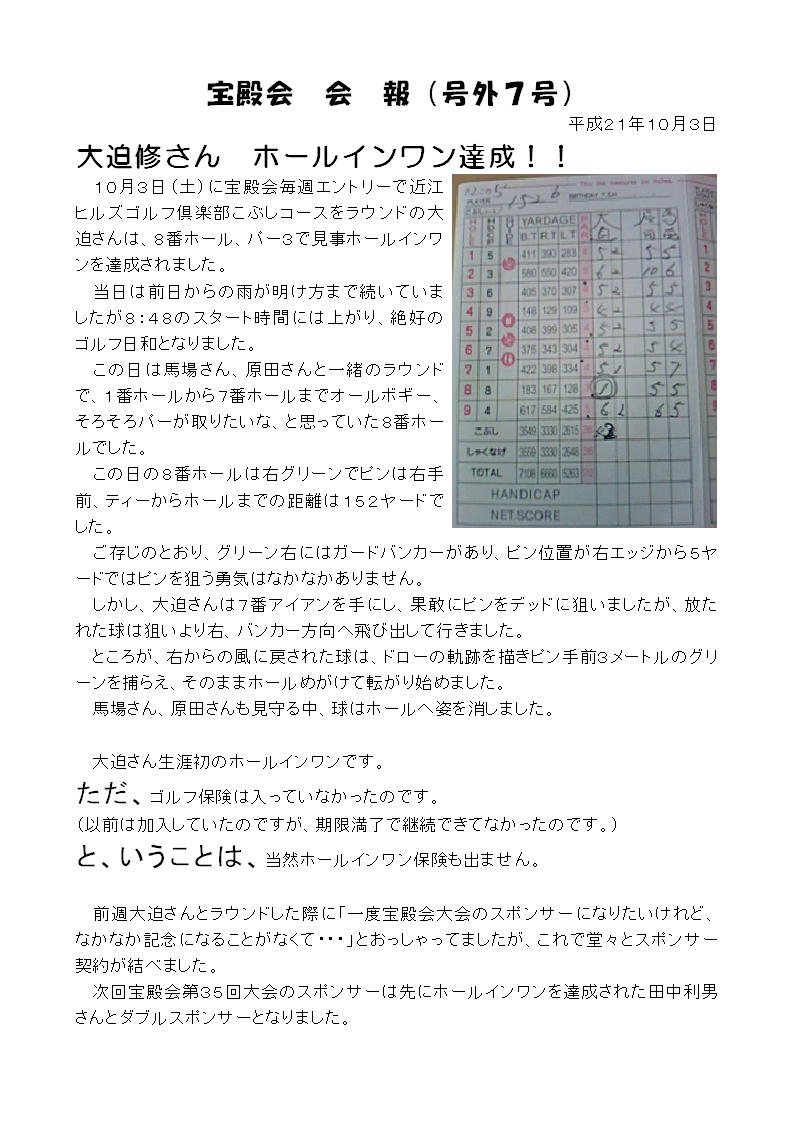 宝殿会　会　報（号外７号）
平成２１年１０月３日
大迫修さん　ホールインワン達成！！
１０月３日（土）に宝殿会毎週エントリーで近江
ヒルズゴルフ倶楽部こぶしコースをラウンドの大
迫さんは、８番ホール、パー３で見事ホールインワ
ンを達成されました。
当日は前日からの雨が明け方まで続いていま
したが８：４８のスタート時間には上がり、絶好の
ゴルフ日和となりました。
この日は馬場さん、原田さんと一緒のラウンド
で、１番ホールから７番ホールまでオールボギー、
そろそろパーが取りたいな、と思っていた８番ホー
ルでした。
この日の８番ホールは右グリーンでピンは右手
前、ティーからホールまでの距離は１５２ヤードで
した。
YARDAGE
B.T R.T L.T
1 5 411 390 283
2 3 580 550 420
3 6 405 370 307
4 9 148 129 109
5 2 408 399 305
6 7 375 343 304
7 1 422 398 334
8 8 183 167 128
9 4 617 584 425
こぶし 3549 3330 2615 36
しゃくなげ 3559 3330 2648 36
TOTAL 7108 6660 5263 72
HANDICAP
NET.SCORE
ご存じのとおり、グリーン右にはガードバンカーがあり、ピン位置が右エッジから５ヤ
ードではピンを狙う勇気はなかなかありません。
しかし、大迫さんは７番アイアンを手にし、果敢にピンをデッドに狙いましたが、放た
れた球は狙いより右、バンカー方向へ飛び出して行きました。
ところが、右からの風に戻された球は、ドローの軌跡を描きピン手前３メートルのグリ
ーンを捕らえ、そのままホールめがけて転がり始めました。
馬場さん、原田さんも見守る中、球はホールへ姿を消しました。
大迫さん生涯初のホールインワンです。
ただ、ゴルフ保険は入っていなかったのです。
（以前は加入していたのですが、期限満了で継続できてなかったのです。）
と、いうことは、当然ホールインワン保険も出ません。
前週大迫さんとラウンドした際に「一度宝殿会大会のスポンサーになりたいけれど、
なかなか記念になることがなくて・・・」とおっしゃってましたが、これで堂々とスポンサー
契約が結べました。
次回宝殿会第３５回大会のスポンサーは先にホールインワンを達成された田中利男
さんとダブルスポンサーとなりました。